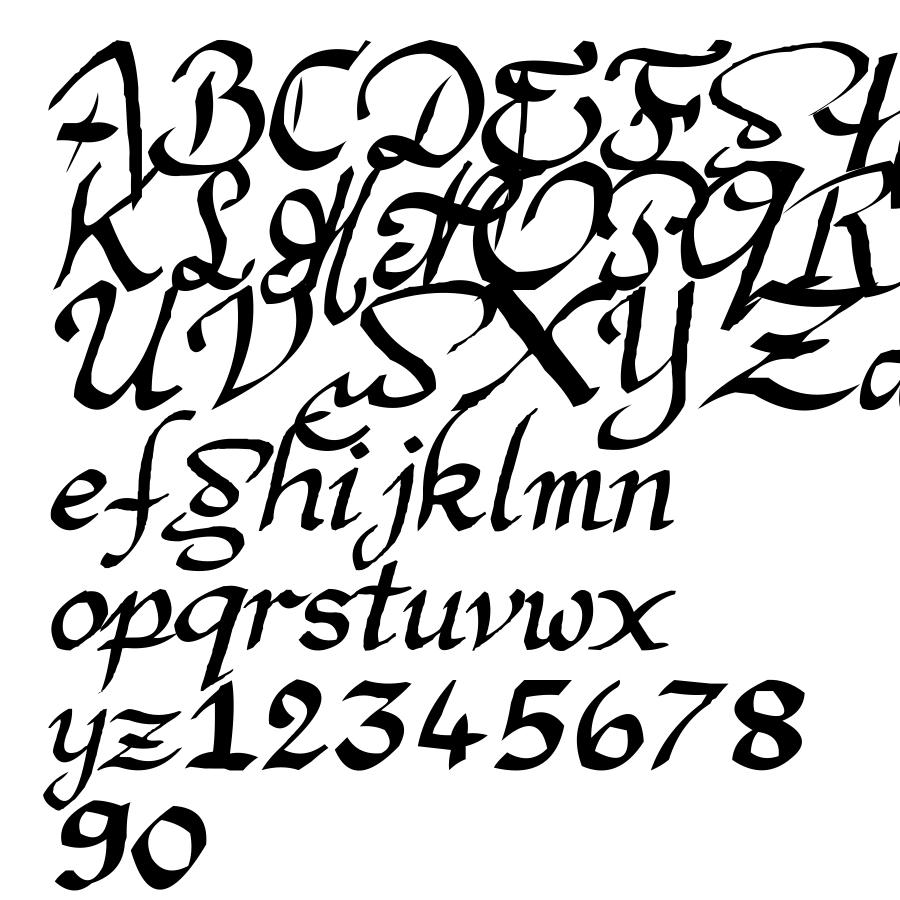 ABCDEFGH
KLMNOPQR
UVWXYZa
efghijklmn
opqrstuvwx
yz12345678
90